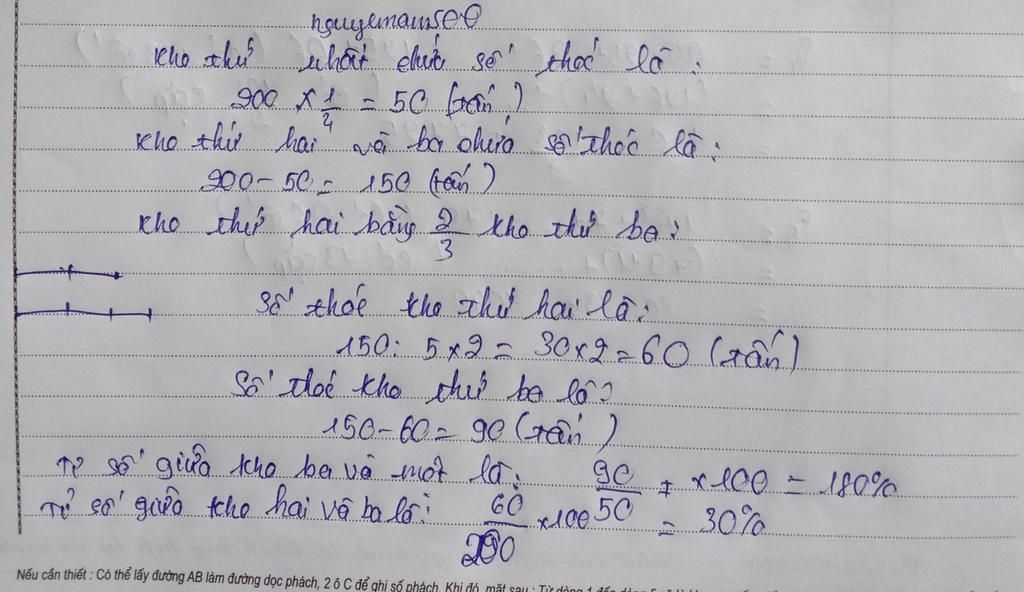 nguyemam500
Kho thứ nhất chứa số thóc là:
200 x 1/4 = 50 (tấn)
Kho thứ hai và ba chứa số thóc là:
200 - 50 = 150 (tấn)
Kho thứ hai bằng 2/3 kho thứ ba:
Số thóc kho thứ hai là:
150 : 5 x 2 = 30 x 2 = 60 (tấn)
Số thóc kho thứ ba là:
150 - 60 = 90 (tấn)
Tỉ số giữa kho ba và một là: 90/50 x 100 = 180%
Tỉ số giữa kho hai và ba là: 60/200 x 100 = 30%
Nếu cần thiết : Có thể lấy đường AB làm đường dọc phách, 2 ô C để ghi số phách. Khi đó, mặt sau : Từ dòng 1 đến dòng 5